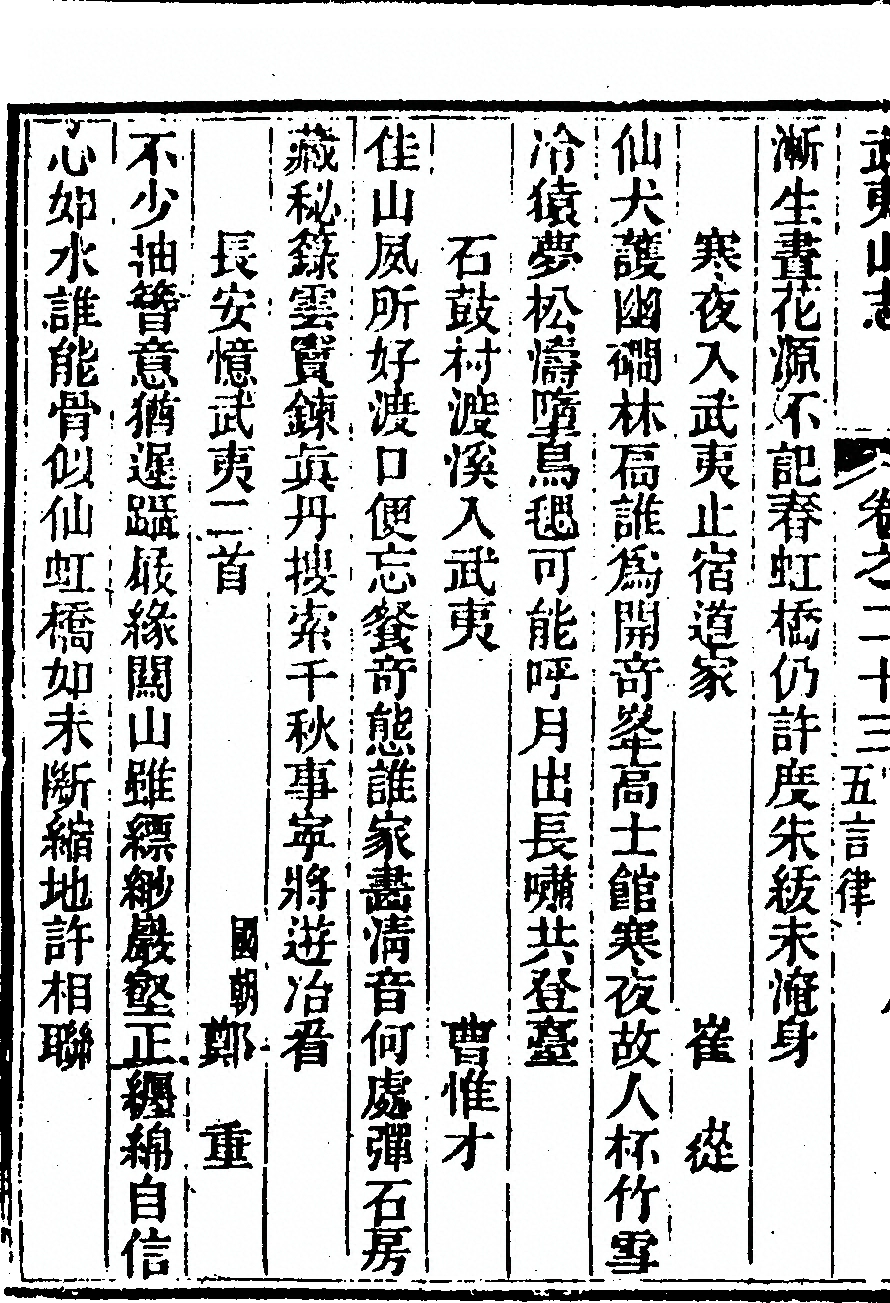 武夷山志 卷之二十三 五言律
漸生晝花源不記春虹橋仍許度朱紱未淹身
寒夜入武夷止宿道家 崔 從
仙犬護幽磵林扃誰爲開奇峯高士館寒夜故人杯竹雪
冷猿夢松濤墮鳥毸可能呼月出長嘯共登臺
石鼓村渡溪入武夷 曹惟才
佳山夙所好渡口便忘餐奇態誰家畵淸音何處彈石房
藏秘籙雲竇鍊眞丹搜索千秋事寧將遊冶看
長安憶武夷二首 國朝鄭 重
不少抽簪意猶遲躡屐緣關山雖縹緲巖壑正纒綿自信
心如水誰能骨似仙虹橋如未斷縮地許相聯